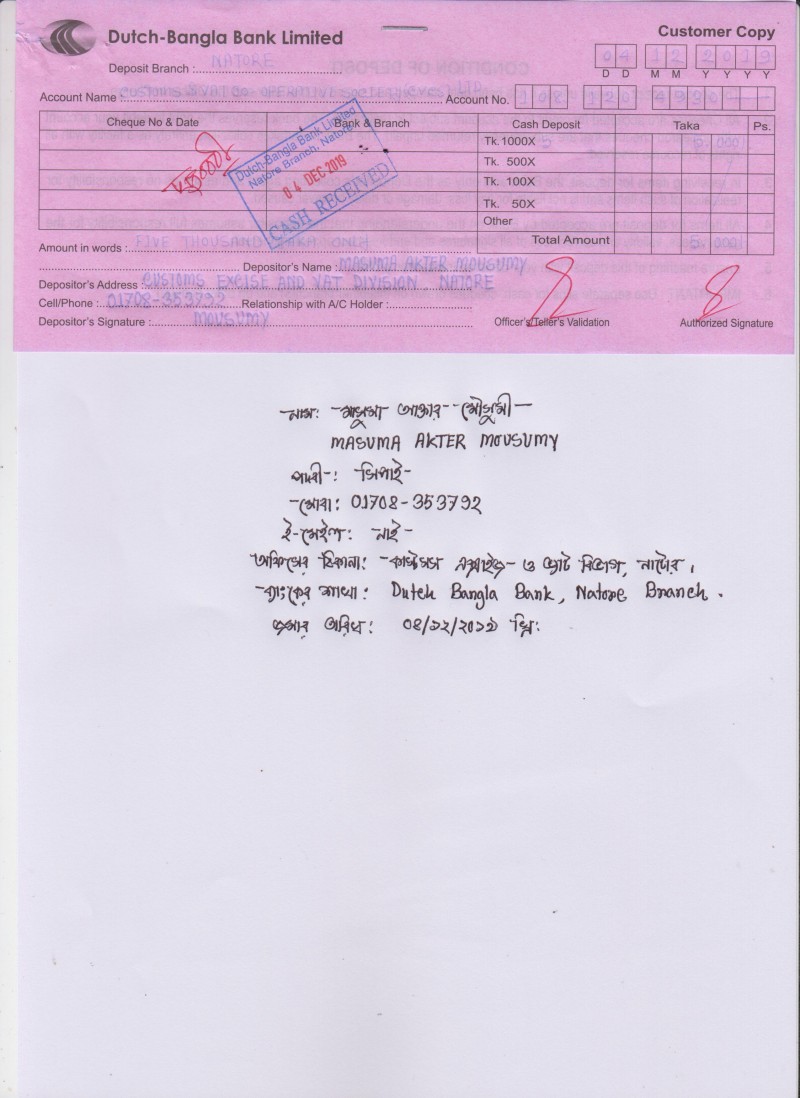 Dutch-Bangla Bank Limited
Customer Copy
Deposit Branch : NATORE
04 12 2019
D D M M Y Y Y Y
Account Name : CUSTOMS & VAT CO-OPERATIVE SOCIETY (CVCS) LTD
Account No. 108 120 4930
Cheque No & Date Bank & Branch Cash Deposit Taka Ps.
Tk. 1000X 5 5,000
Tk. 500X
Tk. 100X
Tk. 50X
Other
Total Amount 5,000
Dutch-Bangla Bank Limited
Natore Branch, Natore
04 DEC 2019
CASH RECEIVED
Amount in words : FIVE THOUSAND TAKA ONLY
Depositor's Name : MASUMA AKTER MOUSUMY
Depositor's Address : CUSTOMS EXCISE AND VAT DIVISION, NATORE
Cell/Phone : 01708-353792 Relationship with A/C Holder :
Depositor's Signature : MOUSUMY
Officer's/Teller's Validation
Authorized Signature
নাম: মাসুমা আক্তার মৌসুমী
MASUMA AKTER MOUSUMY
পদবী: সিপাই
মোবা: 01708-353792
ই-মেইল: নাই
অফিসের ঠিকানা: কাস্টমস এক্সাইজ ও ভ্যাট বিভাগ, নাটোর।
ব্যাংকের শাখা: Dutch Bangla Bank, Natore Branch.
জমার তারিখ: ০৪/১২/২০১৯ খ্রি: